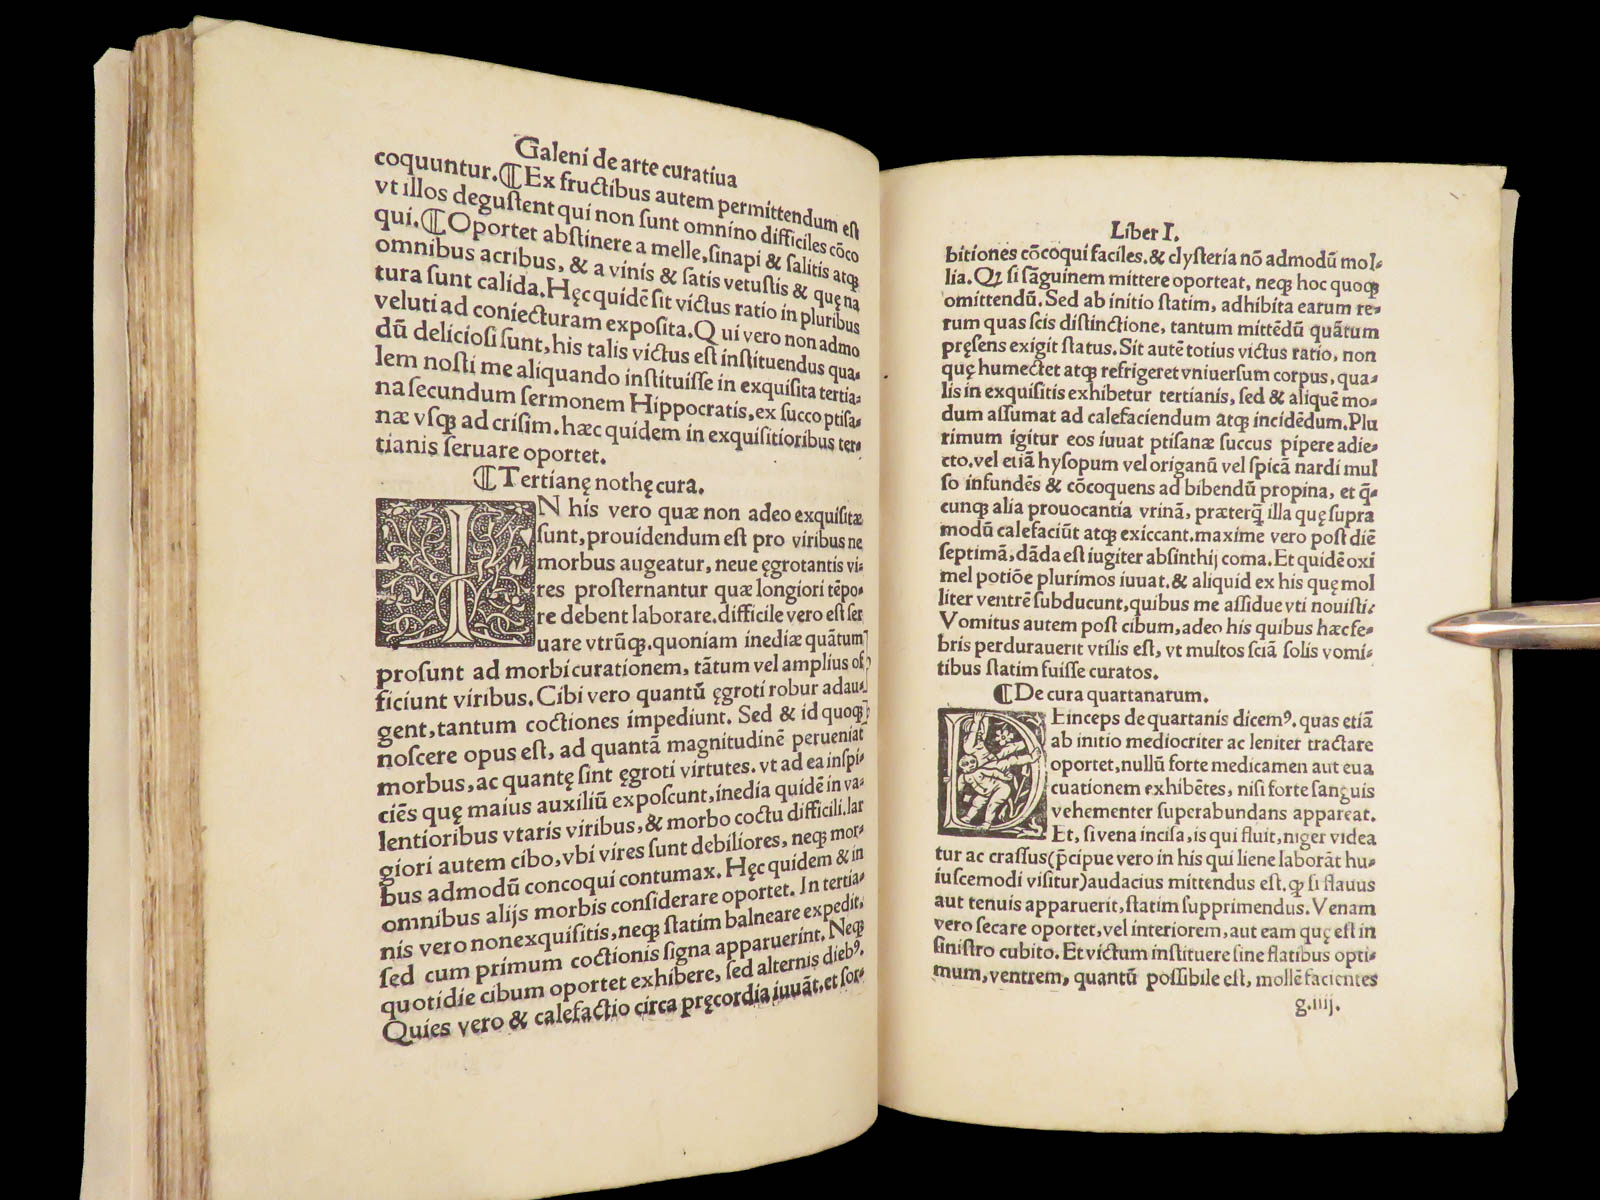 Galeni de arte curatiua
coquuntur.¶Ex fructibus autem permittendum est
vt illos degustent qui non sunt omnino difficiles cōco
qui.¶Oportet abstinere a melle, sinapi & salitis atqꝫ
omnibus acribus, & a vinis & satis vetustis & quę na
tura sunt calida. Hęc quidē sit victus ratio in pluribus
veluti ad coniecturam exposita. Qui vero non admo
dū deliciosi sunt, his talis victus est instituendus qua-
lem nosti me aliquando instituisse in exquisita tertia-
na secundum sermonem Hippocratis, ex succo ptisa-
næ vsqꝫ ad crisim. hæc quidem in exquisitioribus ter-
tianis seruare oportet.
¶Tertianę nothę cura.
IN his vero quæ non adeo exquisitæ
sunt, prouidendum est pro viribus ne
morbus augeatur, neue ęgrotantis vi-
res prosternantur quæ longiori tēpo-
re debent laborare. difficile vero est ser
uare vtrūqꝫ. quoniam inediæ quātum
prosunt ad morbi curationem, tātum vel amplius of
ficiunt viribus. Cibi vero quantū ęgroti robur adau-
gent, tantum coctiones impediunt. Sed & id quoqꝫ
noscere opus est, ad quantā magnitudinē perueniat
morbus, ac quantę sint ęgroti virtutes. vt ad ea inspi-
ciēs quę maius auxiliū exposcunt, inedia quidē in va-
lentioribus vtaris viribus, & morbo coctu difficili. lar
giori autem cibo, vbi vires sunt debiliores, neqꝫ mor-
bus admodū concoqui contumax. Hęc quidem & in
omnibus alijs morbis considerare oportet. In tertia-
nis vero non exquisitis, neqꝫ statim balneare expedit,
sed cum primum coctionis signa apparuerint. Neqꝫ
quotidie cibum oportet exhibere, sed alternis diebꝰ.
Quies vero & calefactio circa pręcordia iuuāt, et sor-
Liber I.
bitiones cōcoqui faciles. & clysteria nō admodū mol-
lia. Qꝫ si sāguinem mittere oporteat, neqꝫ hoc quoqꝫ
omittendū. Sed ab initio statim, adhibita earum re-
rum quas scis distinctione, tantum mittēdū quātum
pręsens exigit status. Sit autē totius victus ratio, non
quę humectet atqꝫ refrigeret vniuersum corpus, qua-
lis in exquisitis exhibetur tertianis, sed & aliquē mo-
dum assumat ad calefaciendum atqꝫ incidēdum. Plu
rimum igitur eos iuuat ptisanæ succus pipere adie-
cto. vel etiā hysopum vel origanū vel spicā nardi mul
so infundēs & cōcoquens ad bibendū propina, et q̄-
cunqꝫ alia prouocantia vrinā, præterq̄ illa quę supra
modū calefaciūt atqꝫ exiccant. maxime vero post diē
septimā, dāda est iugiter absinthij coma. Et quidē oxi
mel potiōe plurimos iuuat. & aliquid ex his quę mol
liter ventrē subducunt, quibus me assidue vti nouisti:
Vomitus autem post cibum, adeo his quibus hæc fe-
bris perdurauerit vtilis est, vt multos sciā solis vomi-
tibus statim fuisse curatos.
¶De cura quartanarum.
DEinceps de quartanis dicemꝰ. quas etiā
ab initio mediocriter ac leniter tractare
oportet, nullū forte medicamen aut eua
cuationem exhibētes, nisi forte sanguis
vehementer superabundans appareat.
Et, si vena incisa, is qui fluit, niger videa
tur ac crassus (p̄cipue vero in his qui liene laborāt hu-
iuscemodi visitur) audacius mittendus est. qꝫ si flauus
aut tenuis apparuerit, statim supprimendus. Venam
vero secare oportet, vel interiorem, aut eam quę est in
sinistro cubito. Et victum instituere sine flatibus opti-
mum, ventrem, quantū possibile est, mollē facientes
g.iiij.